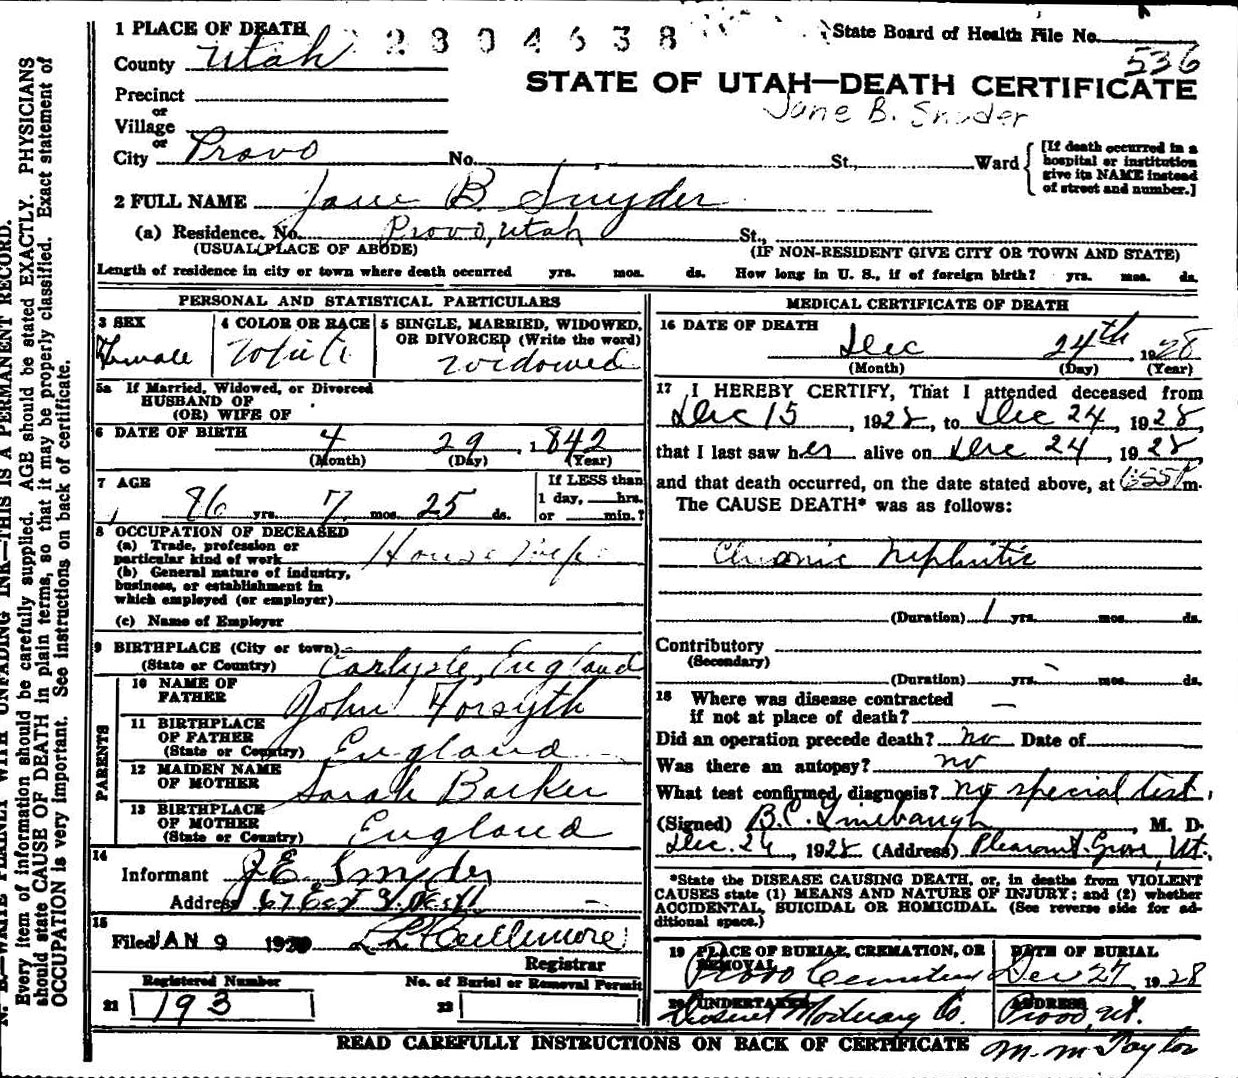 1 PLACE OF DEATH
2 8 0 4 6 3 8
State Board of Health File No.
County Utah
536
STATE OF UTAH—DEATH CERTIFICATE
Precinct
or
Village
Jane B. Snyder
or
City Provo No. St., Ward
[If death occurred in a
hospital or institution
give its NAME instead
of street and number.]
2 FULL NAME Jane B. Snyder
(a) Residence. No. Provo, Utah St.,
(USUAL PLACE OF ABODE) (IF NON-RESIDENT GIVE CITY OR TOWN AND STATE)
Length of residence in city or town where death occurred yrs. mos. ds. How long in U. S., if of foreign birth? yrs. mos. ds.
PERSONAL AND STATISTICAL PARTICULARS
3 SEX
Female
4 COLOR OR RACE
White
5 SINGLE, MARRIED, WIDOWED,
OR DIVORCED (Write the word)
Widowed
5a If Married, Widowed, or Divorced
HUSBAND OF
(OR) WIFE OF
6 DATE OF BIRTH 4 29 1842
(Month) (Day) (Year)
7 AGE
86 yrs. 7 mos. 25 ds.
If LESS than
1 day, hrs.
or min.?
8 OCCUPATION OF DECEASED
(a) Trade, profession or
particular kind of work House Wife
(b) General nature of industry,
business, or establishment in
which employed (or employer)
(c) Name of Employer
9 BIRTHPLACE (City or town)
(State or Country) Carlysle, England
PARENTS
10 NAME OF
FATHER John Forsyth
11 BIRTHPLACE
OF FATHER
(State or Country) England
12 MAIDEN NAME
OF MOTHER Sarah Barker
13 BIRTHPLACE
OF MOTHER
(State or Country) England
14
Informant J.E. Snyder
Address 67 East
15
Filed JAN 9 192
Registrar
Registered Number
21 193
No. of Burial or Removal Permit
22
MEDICAL CERTIFICATE OF DEATH
16 DATE OF DEATH
Dec 24th 1928
(Month) (Day) (Year)
17 I HEREBY CERTIFY, That I attended deceased from
Dec 15, 1928, to Dec 24, 1928,
that I last saw her alive on Dec 24, 1928,
and that death occurred, on the date stated above, at m.
The CAUSE DEATH* was as follows:
Chronic Nephritis
(Duration) 1 yrs. mos. ds.
Contributory
(Secondary)
(Duration) yrs. mos. ds.
18 Where was disease contracted
if not at place of death? —
Did an operation precede death? no Date of
Was there an autopsy? no
What test confirmed diagnosis? no special test.
(Signed) B.C. Linebaugh, M. D.
Dec. 26, 1928 (Address) Pleasant Grove, Ut.
*State the DISEASE CAUSING DEATH, or, in deaths from VIOLENT
CAUSES state (1) MEANS AND NATURE OF INJURY; and (2) whether
ACCIDENTAL, SUICIDAL OR HOMICIDAL. (See reverse side for ad-
ditional space.)
19 PLACE OF BURIAL, CREMATION, OR
REMOVAL
Provo Cemetery
DATE OF BURIAL
Dec 27 1928
20 UNDERTAKER
Deseret Mortuary Co.
ADDRESS
Provo, Ut.
READ CAREFULLY INSTRUCTIONS ON BACK OF CERTIFICATE
M. M. Taylor
N. B.—WRITE PLAINLY WITH UNFADING INK—THIS IS A PERMANENT RECORD.
Every item of information should be carefully supplied. AGE should be stated EXACTLY. PHYSICIANS
should state CAUSE OF DEATH in plain terms, so that it may be properly classified. Exact statement of
OCCUPATION is very important. See instructions on back of certificate.